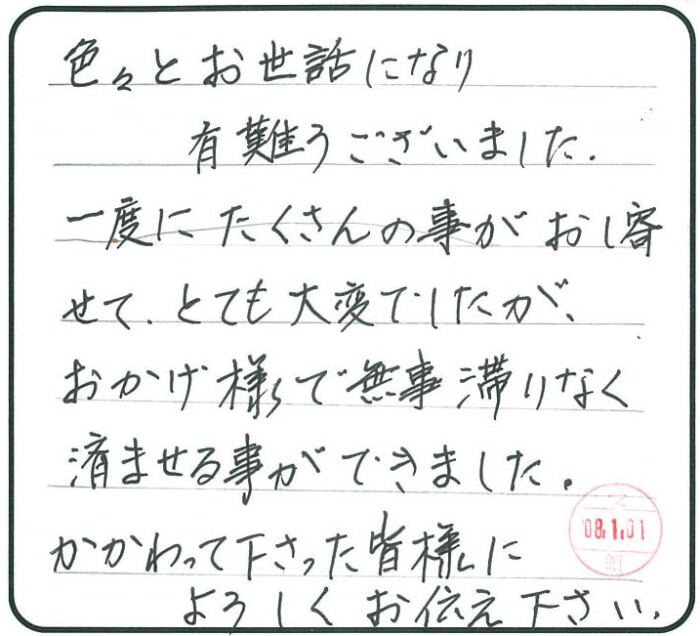 色々とお世話になり
有難うございました.
一度にたくさんの事がおし寄
せて、とても大変でしたが、
おかげ様で無事滞りなく
済ませる事ができました。
かかわって下さった皆様に
よろしくお伝え下さい.
'08.1.01